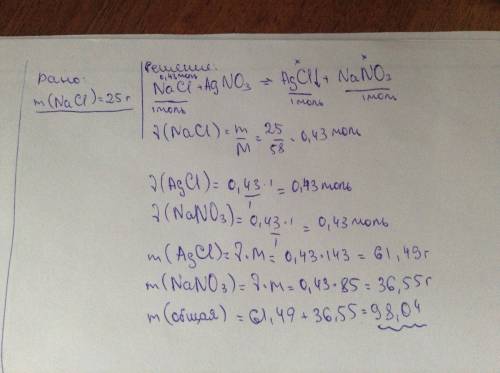 Дано:
m(NaCl)=25г
Решение:
0,43 моль x x
NaCl + AgNO₃ = AgCl↓ + NaNO₃
1 моль 1 моль 1 моль
ν(NaCl) = m/M = 25/58 = 0,43 моль
ν(AgCl) = 0,43·1/1 = 0,43 моль
ν(NaNO₃) = 0,43·1/1 = 0,43 моль
m(AgCl) = ν·M = 0,43·143 = 61,49 г
m(NaNO₃) = ν·M = 0,43·85 = 36,55 г
m(общая) = 61,49 + 36,55 = 98,04